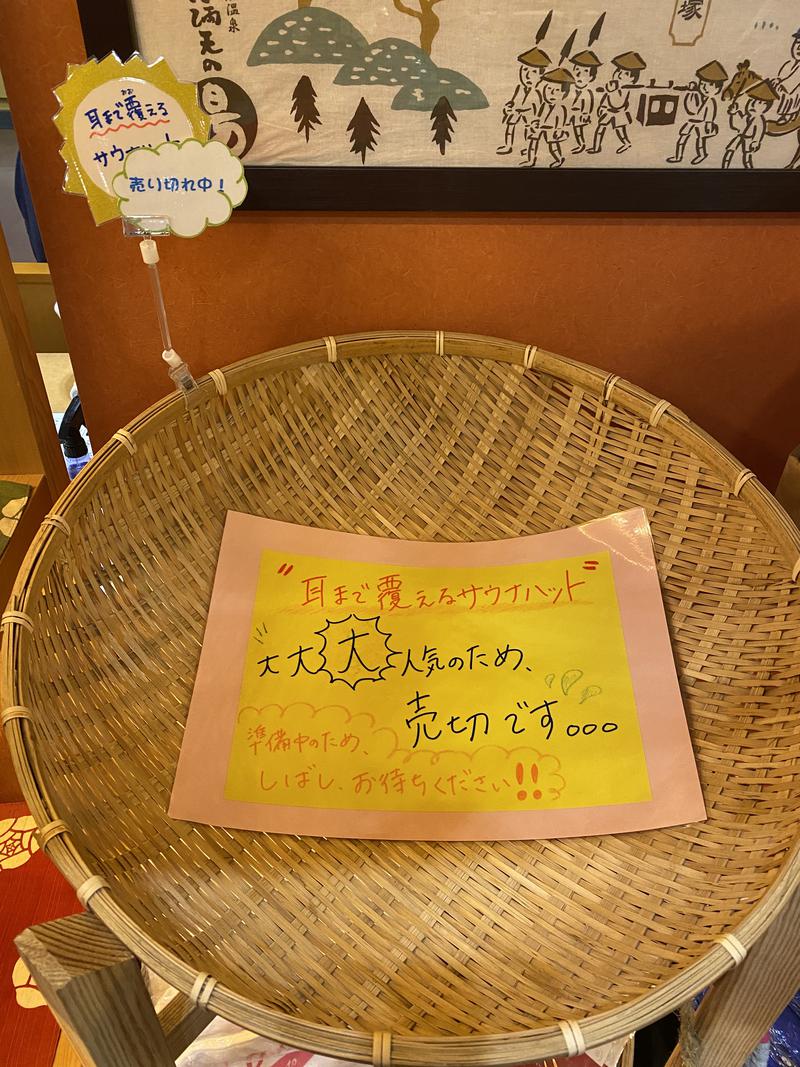 温泉
満天の
塚
耳まで覆える
おお
売り切れ中！
"耳まで覆えるサウナハット"
大大大人気のため、
売切です。。。
準備中のため、
しばし、お待ちください!!